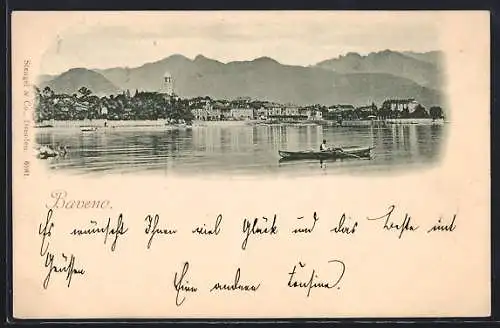 Stengel & Co., Dresden. 6981.
Baveno.
Es wünscht Ihnen viel Glück und das Beste mit
Grüssen
Eine andere Cousine.